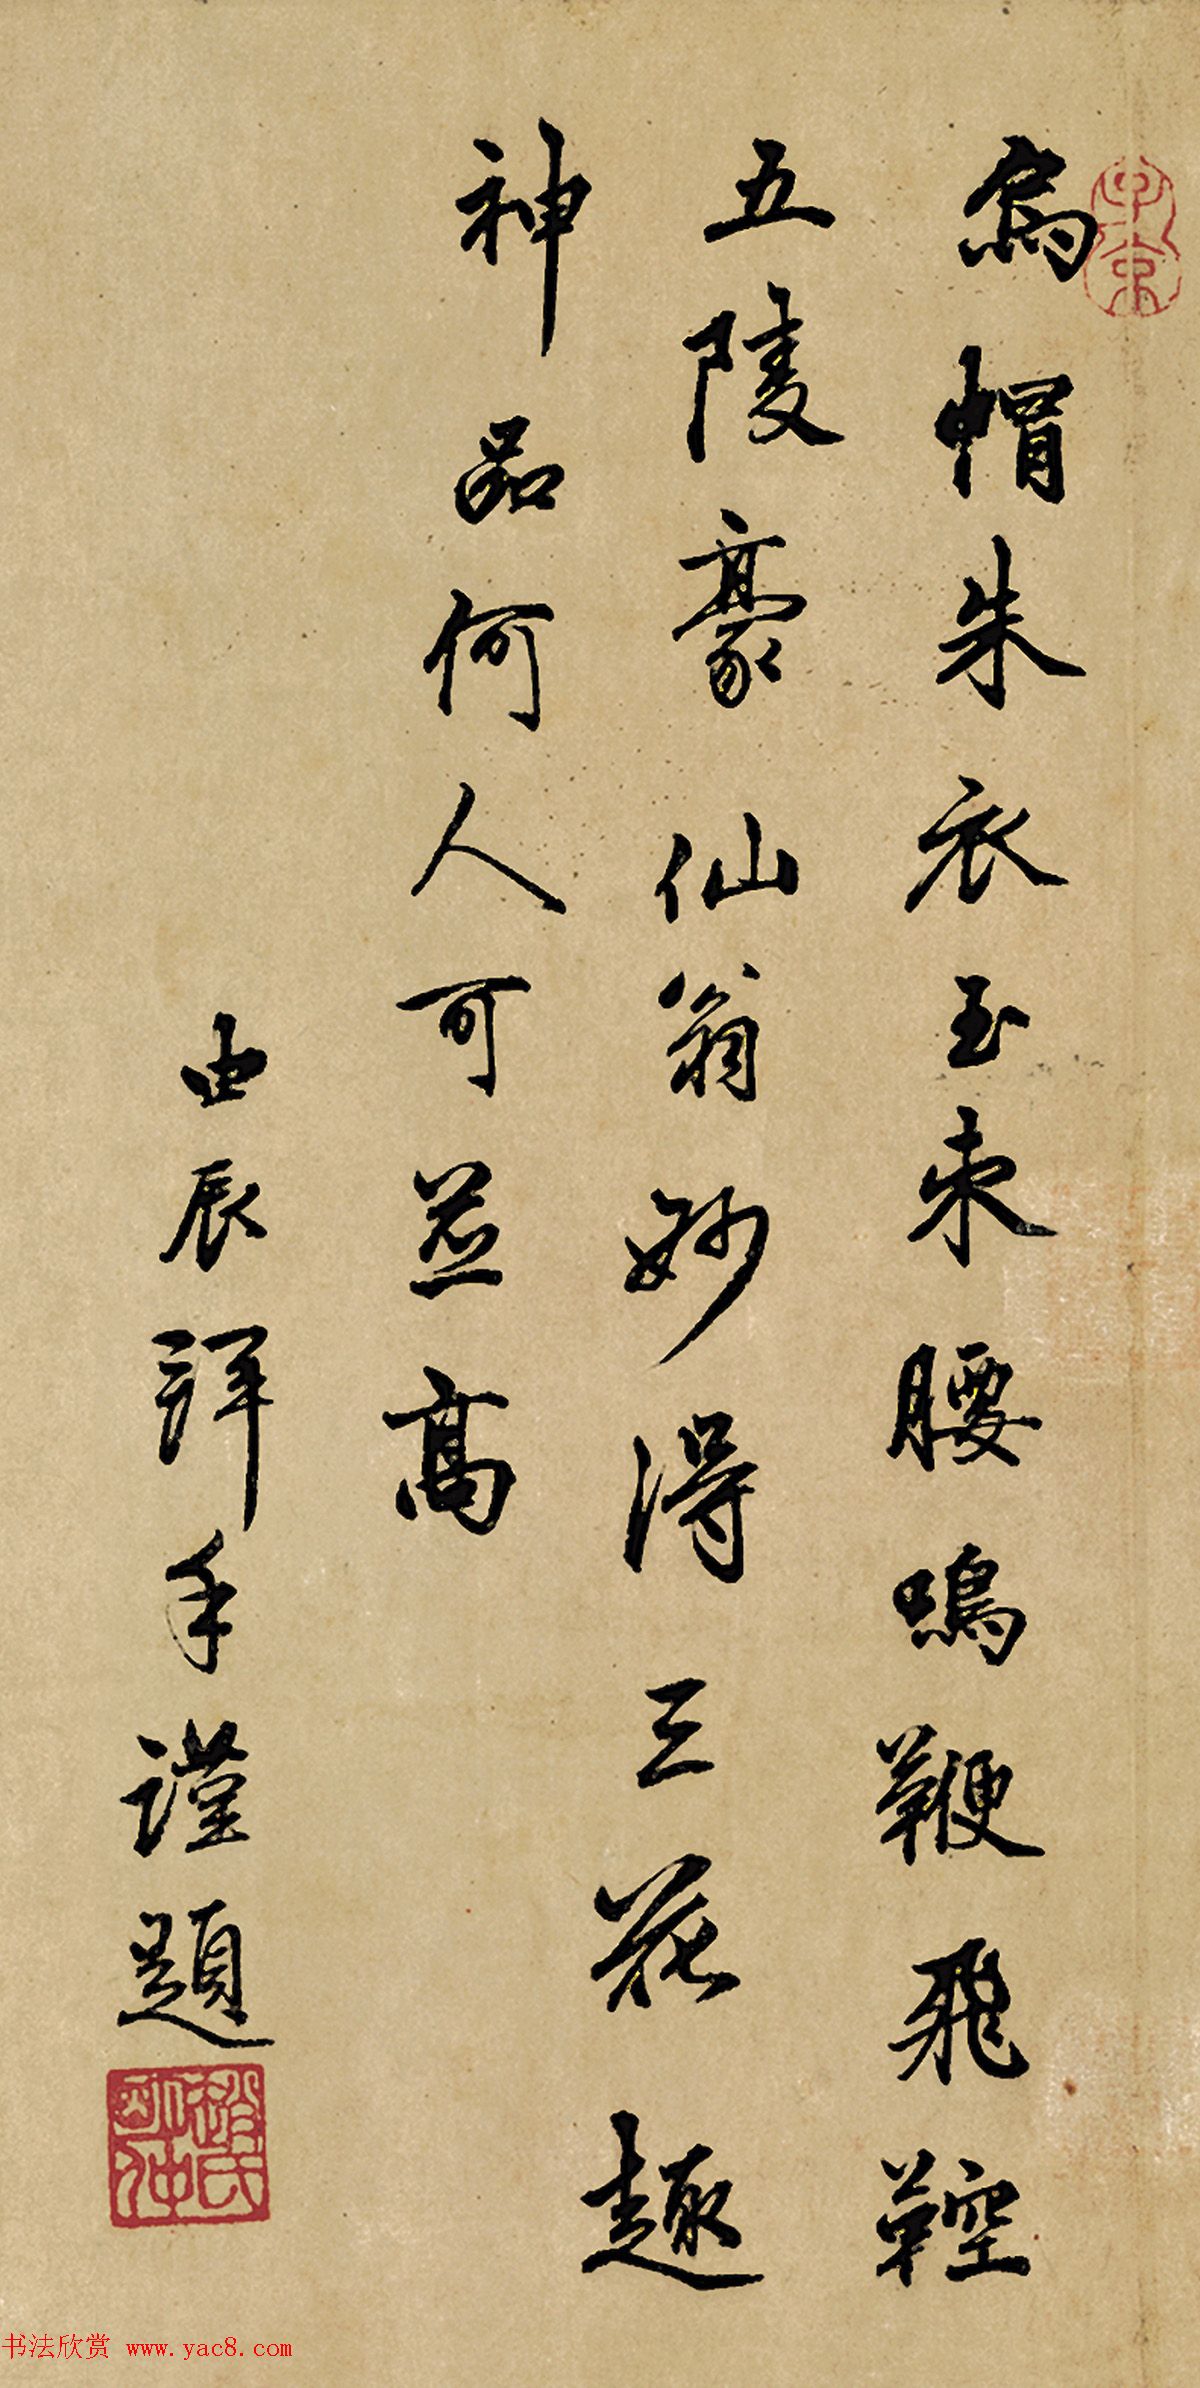 烏帽朱衣玉束腰鳴鞭飛鞚
五陵豪仙翁妙得三花趣
神品何人可並高
由辰拜手謹題
趙氏
子京
书法欣赏 www.yac8.com